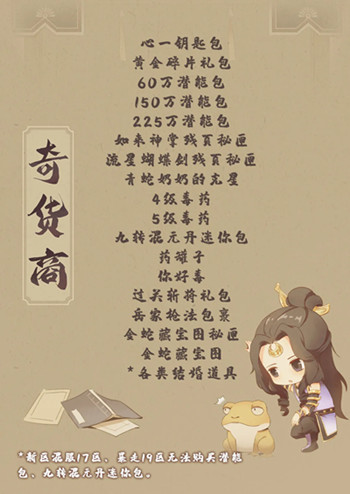 奇货商
心一钥匙包
黄金碎片礼包
60万潜能包
150万潜能包
225万潜能包
如来神掌残页秘匣
流星蝴蝶剑残页秘匣
青蛇奶奶的克星
4级毒药
5级毒药
九转混元丹迷你包
药罐子
你好毒
过关斩将礼包
岳家枪法包裹
金蛇藏宝图秘匣
金蛇藏宝图
*各类结婚道具
*新区混服17区，暴走19区无法购买潜能
包，九转混元丹迷你包。